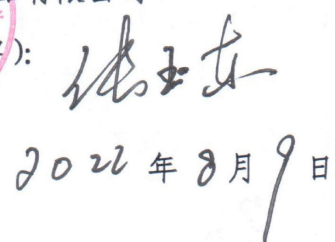 ):
玉东
2022年8月9日